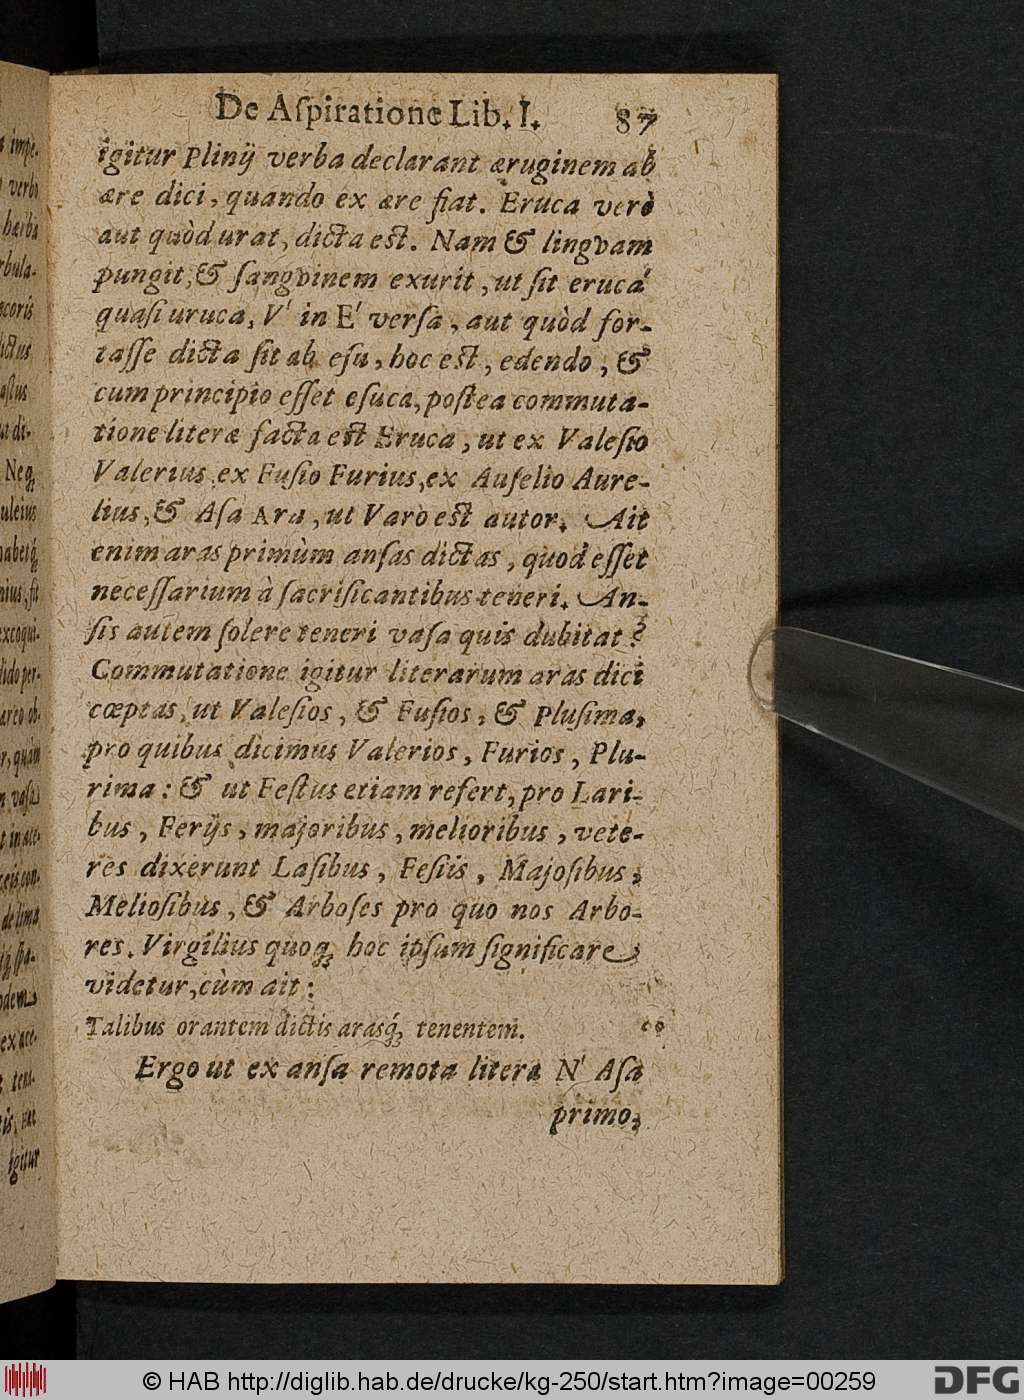 De Aſpiratione Lib. I. 87
igitur Plinij verba declarant æruginem ab
ære dici, quando ex ære fiat. Eruca verò
aut quòd urat, dicta est. Nam & lingvam
pungit, & ſangvinem exurit, ut ſit eruca
quaſi uruca, V' in E' verſa, aut quòd for-
taſſe dicta ſit ab eſu, hoc est, edendo, &
cum principio eſſet eſuca, poſtea commuta-
tione literæ facta est Eruca, ut ex Valeſio
Valerius, ex Fuſio Furius, ex Auſelio Aure-
lius, & Aſa Ara, ut Varo est autor. Ait
enim aras primùm anſas dictas, quod eſſet
neceſſarium à ſacrificantibus teneri. An-
ſis autem ſolere teneri vaſa quis dubitat?
Commutatione igitur literarum aras dici
cœptas, ut Valeſios, & Fuſios, & Pluſima,
pro quibus dicimus Valerios, Furios, Plu-
rima: & ut Feſtus etiam refert, pro Lari-
bus, Ferijs, majoribus, melioribus, vete-
res dixerunt Laſibus, Feſiis, Majoſibus,
Melioſibus, & Arboſes pro quo nos Arbo-
res. Virgilius quoq; hoc ipſum ſignificare
videtur, cùm ait:
Talibus orantem dictis arasq́; tenentem.
Ergo ut ex anſa remota litera N' Aſa
primo,
© HAB http://diglib.hab.de/drucke/kg-250/start.htm?image=00259
DFG